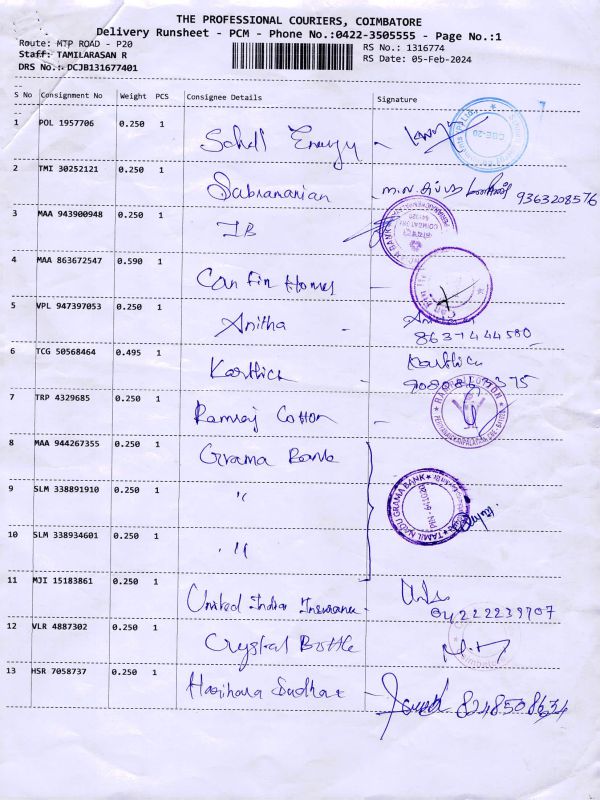 THE PROFESSIONAL COURIERS, COIMBATORE
Delivery Runsheet - PCM - Phone No.:0422-3505555 - Page No.:1
Route: MTP ROAD - P20
RS No.: 1316774
Staff: TAMILARASAN R
RS Date: 05-Feb-2024
DRS No.: DCJB131677401
S No Consignment No Weight PCS Consignee Details Signature
1 POL 1957706 0.250 1 Energy -
2 TMI 30252121 0.250 1 Subramanian - 9363208576
3 MAA 943900948 0.250 1 IB
4 MAA 863672547 0.590 1 Can Fin Homes -
5 VPL 947397053 0.250 1 Anitha -
8637444580
6 TCG 50568464 0.495 1 Karthick Karthick
7 TRP 4329685 0.250 1 Ramraj Cotton -
RAMRAJ COTTON
8 MAA 944267355 0.250 1 Grama Bank
TAMIL NADU GRAMA BANK
9 SLM 338891910 0.250 1 "
10 SLM 338934601 0.250 1 "
11 MJI 15183861 0.250 1 United India Insurance -
04222239707
12 VLR 4887302 0.250 1 Crystal Bottle
13 HSR 7058737 0.250 1 Harihara Sudhan - 8248508634